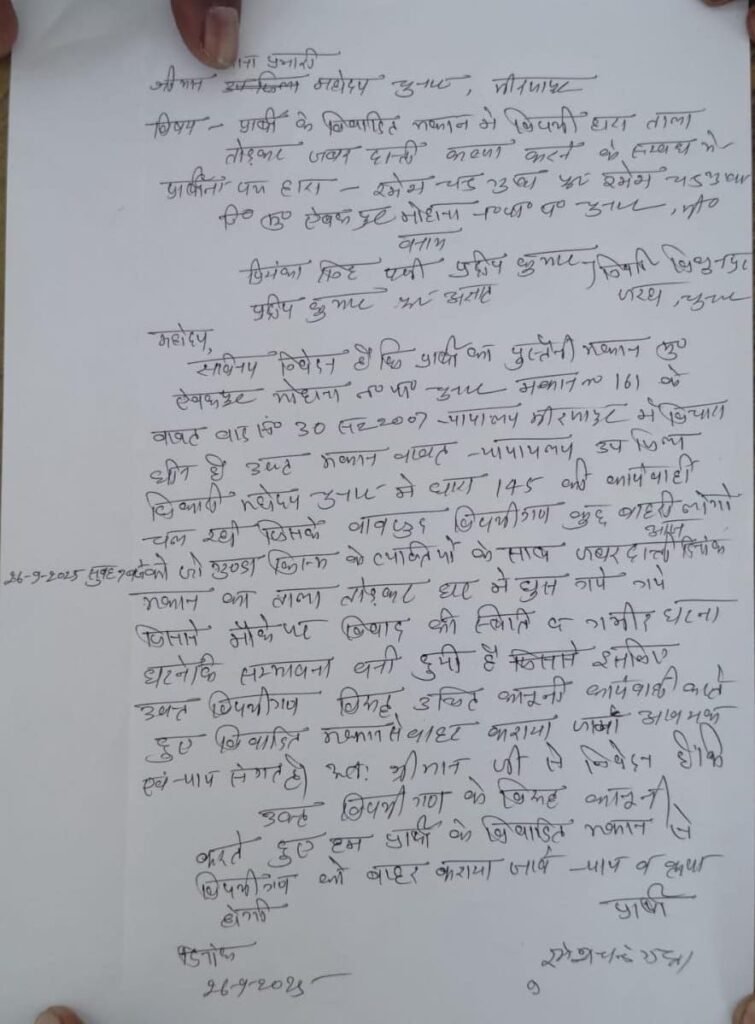 थाना प्रभारी
श्रीमान महोदय चुनार, मीरजापुर
विषय - प्रार्थी के विवादित मकान मे विपक्षी द्वारा ताला
तोड़कर जबरदस्ती कब्जा करने के सम्बन्ध मे
प्रार्थना पत्र द्वारा - रमेश चन्द्र पुत्र स्व०
नि० मु० मोहाना न०पा०प० चुनार, मी०
बनाम
प्रियंका सिंह पत्नी प्रदीप कुमार, निवासी
प्रदीप कुमार पुत्र अज्ञात चुनार
महोदय,
सविनय निवेदन है कि प्रार्थी का पुस्तैनी मकान मु०
मोहाना न०पा० चुनार मकान न० 161 के
बावत वाद सं० 30 सन 2007 न्यायालय मीरजापुर में विचारा
धीन है उक्त मकान बावत न्यायालय उप जिला
धिकारी महोदय चुनार मे धारा 145 की कार्यवाही
चल रही जिसके बावजूद विपक्षीगण कुछ बाहरी लोगो
26-9-2025 सुबह को जो गुण्डा किस्म के व्यक्तियों के साथ जबरदस्ती आज दिनांक
मकान का ताला तोड़कर घर मे घुस गये गये
जिससे मौके पर विवाद की स्थिति व गम्भीर घटना
घटनेकि सम्भावना बनी हुयी है जिससे इसलिए
उक्त विपक्षीगण विरुद्ध उचित कानूनी कार्यवाही करते
हुए विवादित मकान से बाहर कराया जाना आवश्यक
एवं न्याय संगत है। अतः श्रीमान जी से निवेदन है कि
उक्त विपक्षीगण के विरुद्ध कानूनी
करते हुए हम प्रार्थी के विवादित मकान से
विपक्षीगण को बाहर कराया जावे न्याय व कृपा
होगी
प्रार्थी
दिनांक
26-9-2025